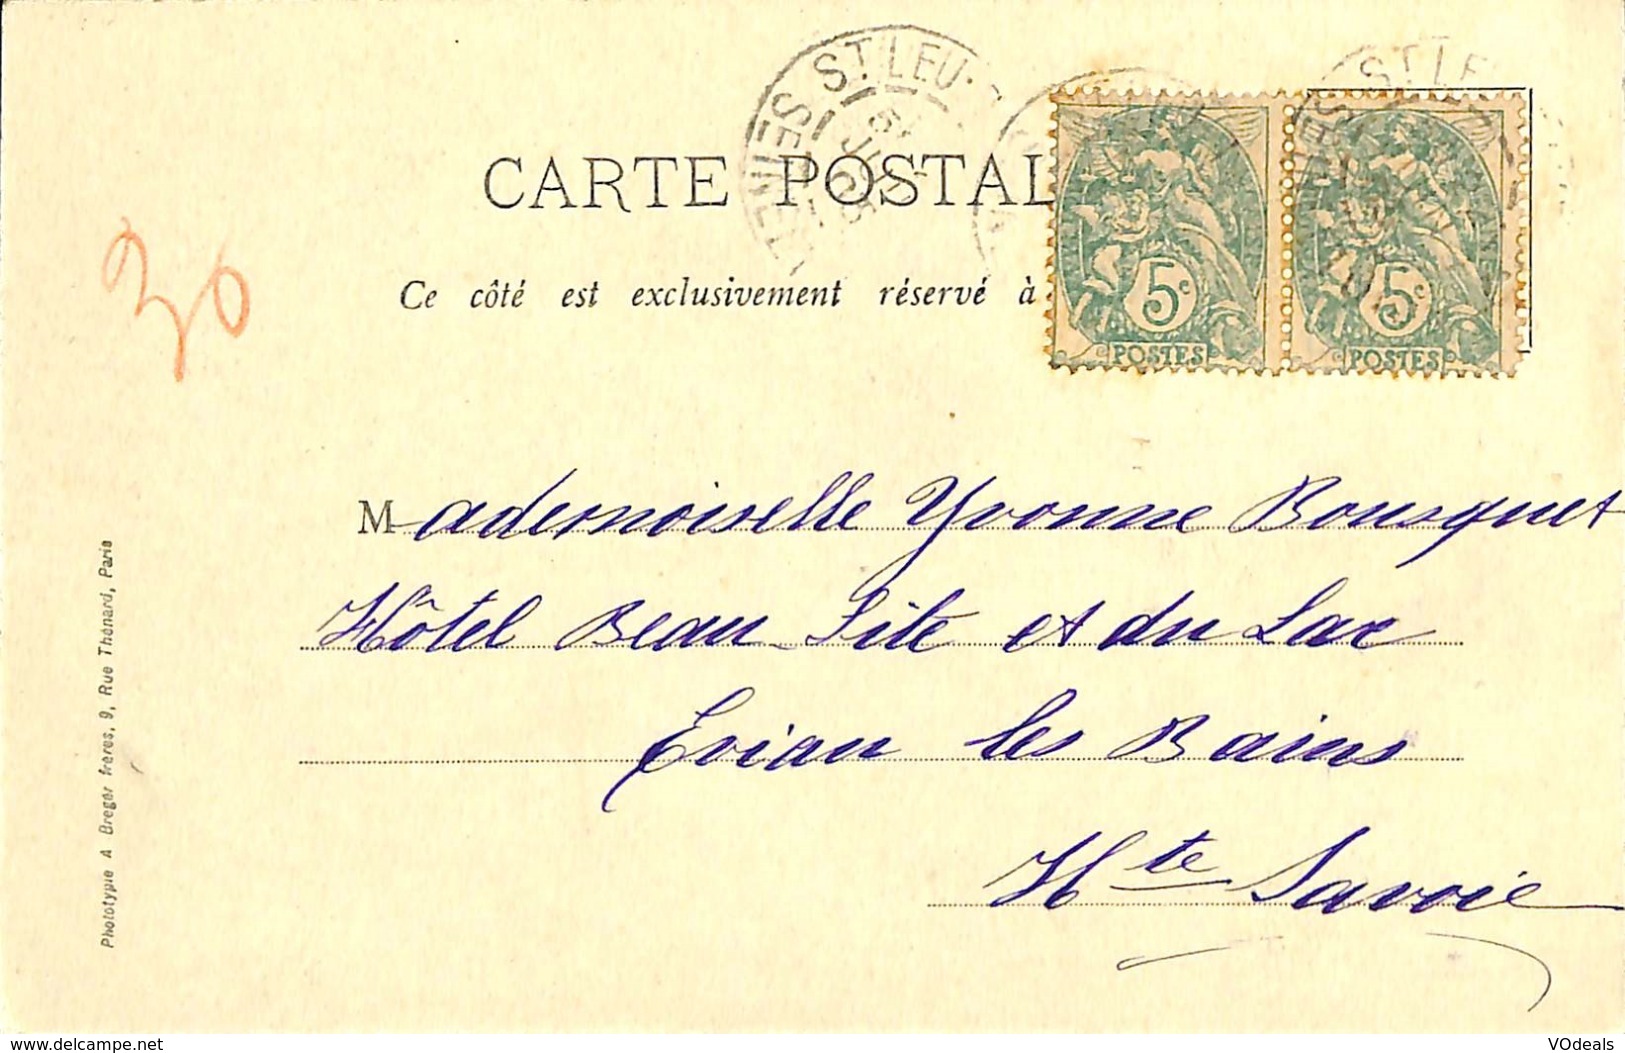 ST LEU
CARTE POSTAL
Ce côté est exclusivement réservé à
30
5c
POSTES
5c
POSTES
Mademoiselle Yvonne Bousquet
Hôtel Beau Site et du Lac
Evian les Bains
Hte Savoie
Phototypie A Breger frères, 9, Rue Thénard, Paris
www.delcampe.net
VOdeals